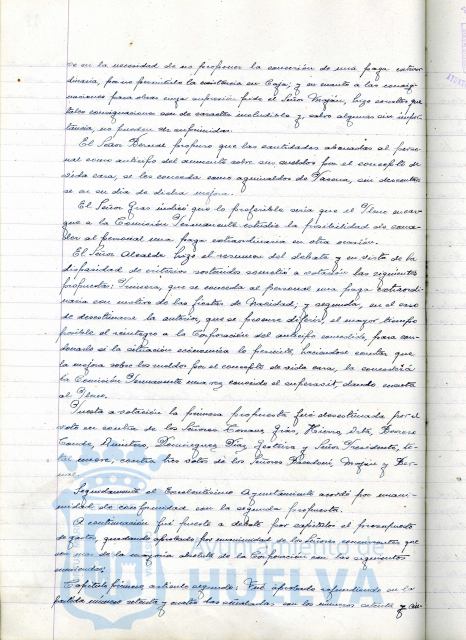 se en la necesidad de no proponer la concesión de una paga extraor-
dinaria, por no permitirlo la existencia en Caja; y en cuanto a las consig-
naciones para obras cuya supresión pide el Señor Moján, hizo constar que
tales consignaciones son de carácter ineludible y, salvo algunas sin impor-
tancia, no pueden ser suprimidas.
El Señor Bernal propuso que las cantidades abonadas al perso-
nal como anticipo del aumento sobre sus sueldos por el concepto de
vida cara, se les conceda como aguinaldo de Pascua, sin descontar-
se en su día de dicha mejora.
El Señor Gras indicó que lo preferible sería que el Pleno encar-
gue a la Comisión Permanente estudie la posibilidad de conce-
der al personal una paga extraordinaria en otra ocasión.
El Señor Alcalde hizo el resumen del debate y en vista de la
disparidad de criterios sostenidos sometió a votación las siguientes
propuestas: Primera, que se conceda al personal una paga extraordi-
naria con motivo de las fiestas de Navidad; y segunda, en el caso
de desestimarse la anterior, que se procure diferir el mayor tiempo
posible el reintegro a la Corporación del anticipo concedido, para con-
donarlo si la situación económica lo permite, haciéndose constar que
la mejora sobre los sueldos por el concepto de vida cara, la concederá
la Comisión Permanente una vez conocido el superávit, dando cuenta
al Pleno.
Puesta a votación la primera propuesta fué desestimada por el
voto en contra de los Señores Gras,
Conde, Quintero, Domínguez y Señor Presidente, to-
tal nueve, contra tres votos de los Señores Moján y Ber-
nal.
Seguidamente el Excelentísimo Ayuntamiento acordó por unani-
midad de conformidad con la segunda propuesta.
A continuación fué puesto a debate por capítulos el presupuesto
de gastos, quedando aprobado por unanimidad de los Señores concurrentes que
son más de la mayoría absoluta de la Corporación con las siguientes

Capítulo primero artículo segundo: Fué aprobado refundiendo en la
partida número setenta y cuatro las señaladas con los números setenta y
Ayuntamiento de
HUELVA